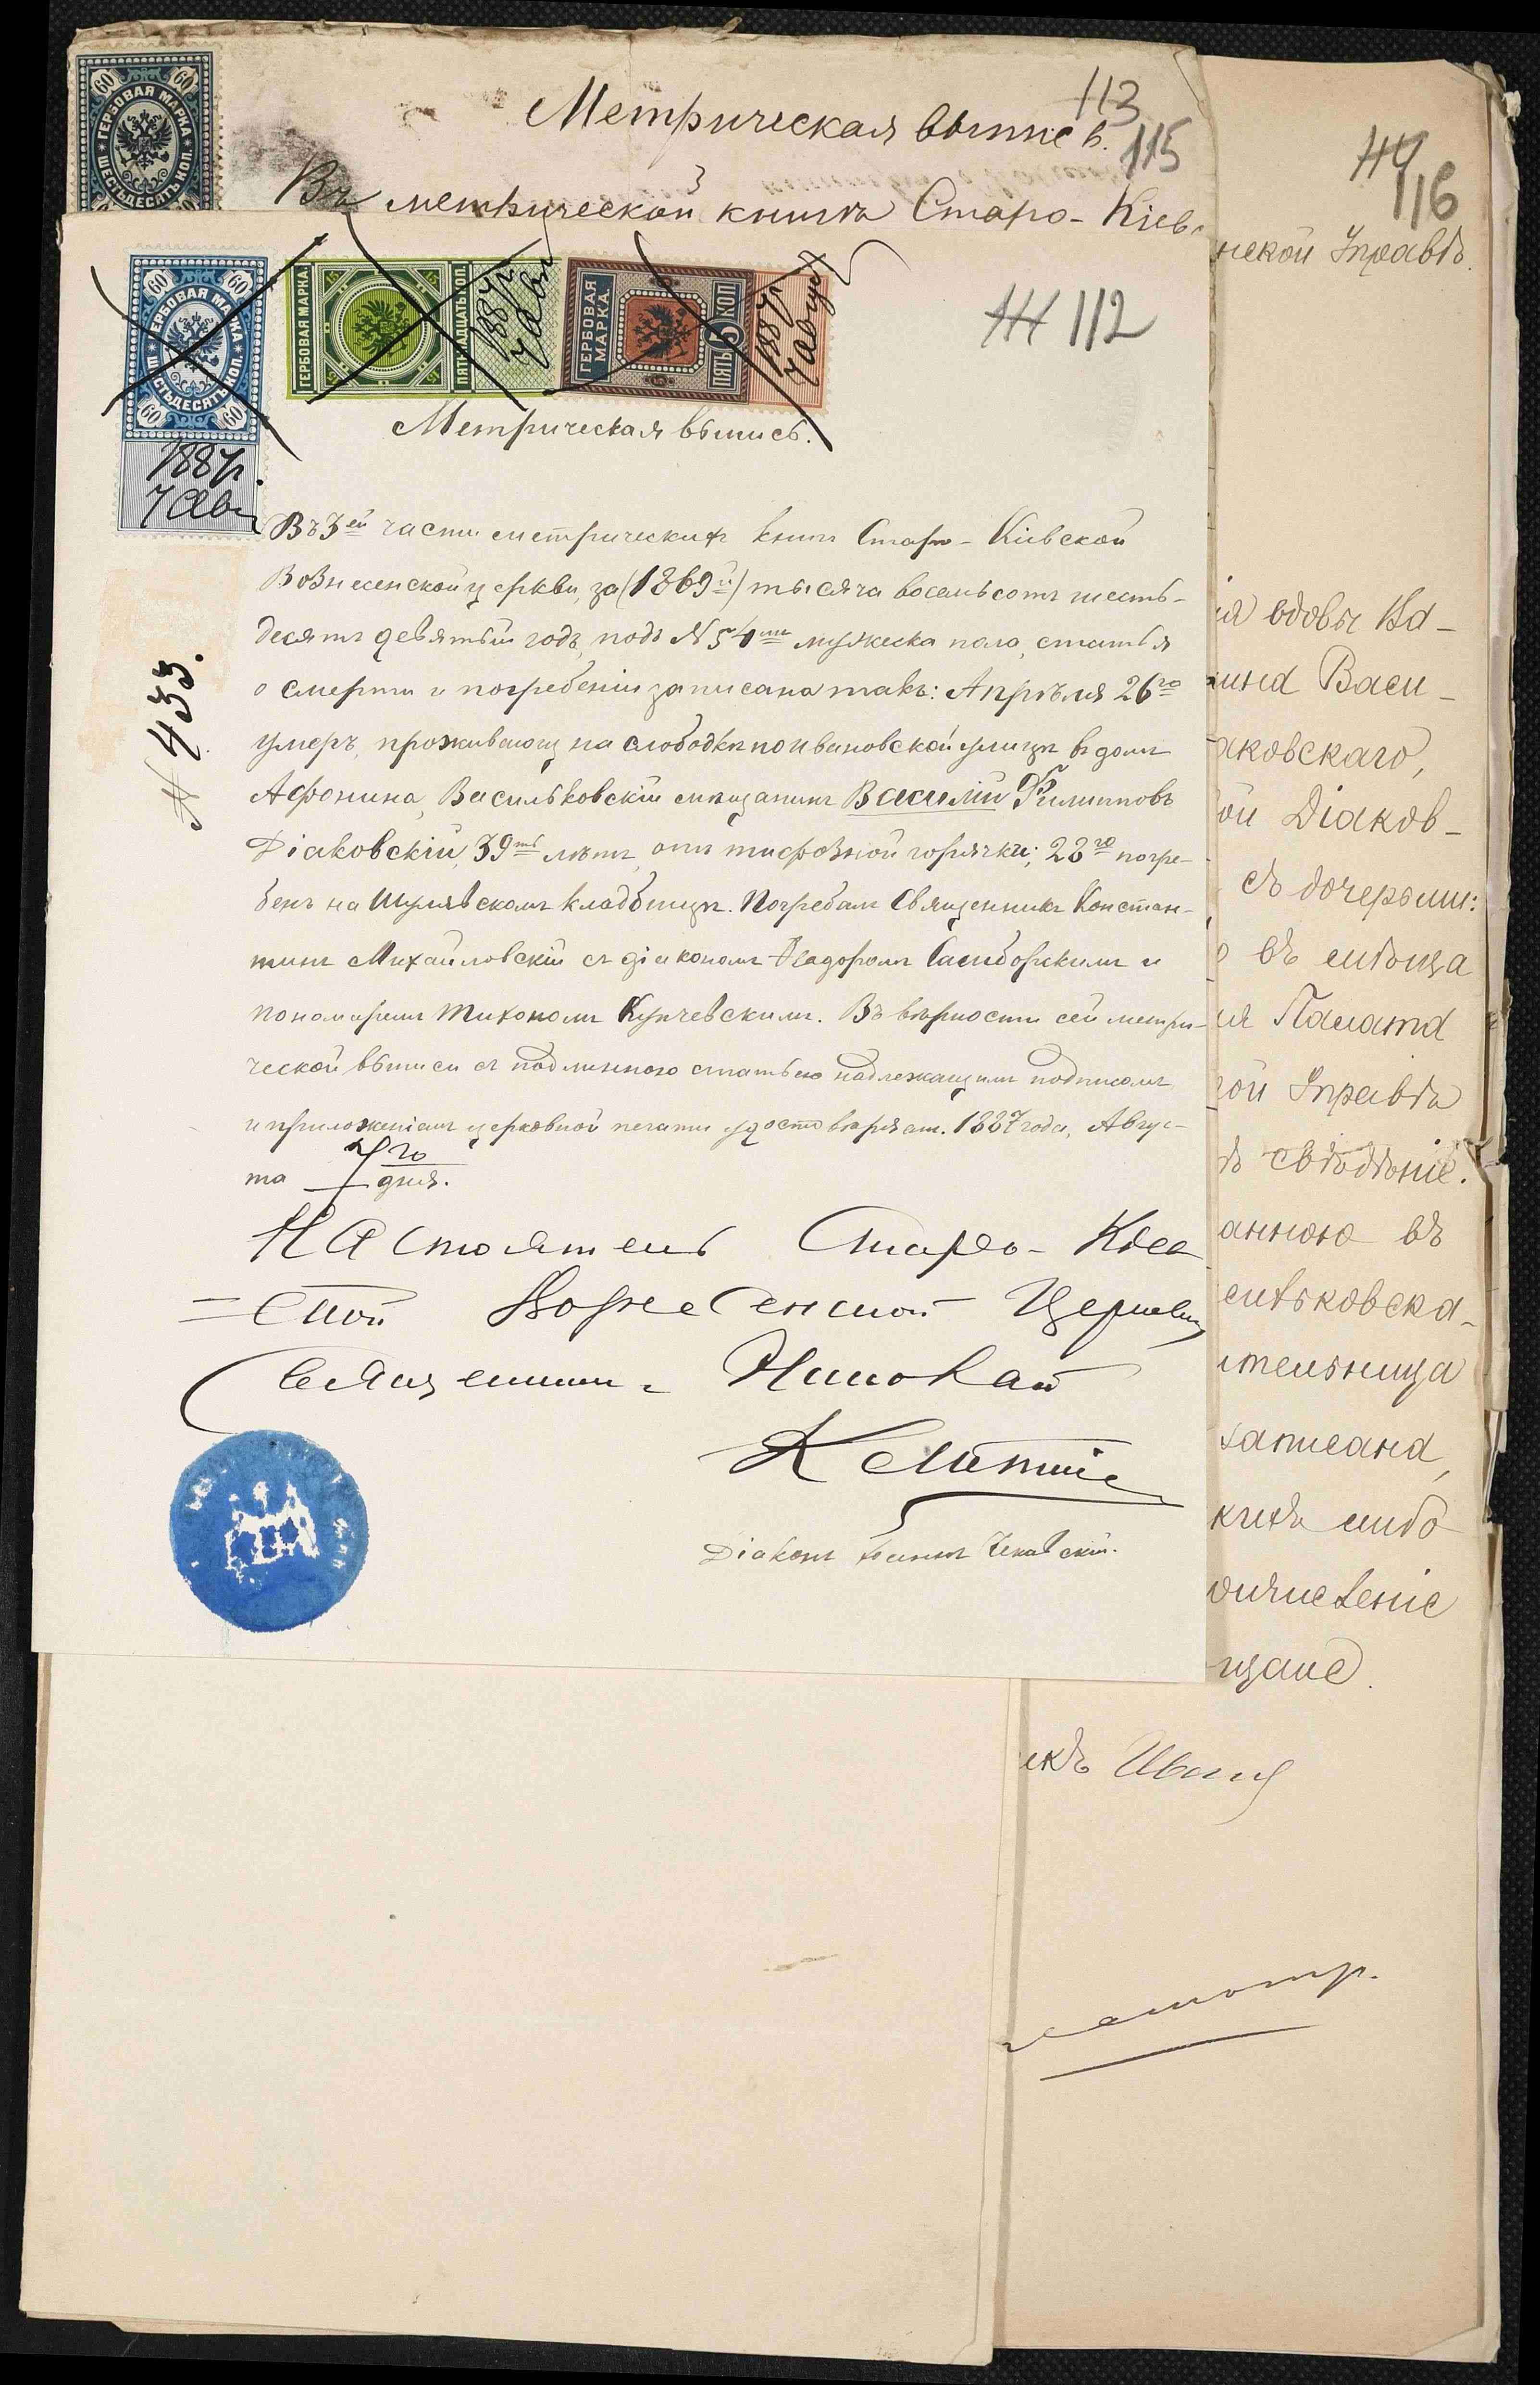 113
Метрическая выпись.
115
Въ метрической книгѣ Старо-Кіев
60 60
ГЕРБОВАЯ МАРКА
ШЕСТЬДЕСЯТЪ КОП.
114
116
нской Управѣ.
60 60
ГЕРБОВАЯ МАРКА
ШЕСТЬДЕСЯТЪ КОП.
60 60
1887г.
7 Авг
ГЕРБОВАЯ МАРКА.
ПЯТНАДЦАТЬ КОП.
1887г
7 Авг
ГЕРБОВАЯ МАРКА.
ПЯТЬ 5 КОП
1887г
7 Авгус
111 112
Метрическая выпись.
№ 433.
Въ 3ей части метрическихъ книгъ Старо-Кіевской
Вознесенской церкви, за (1869й) тысяча восемьсотъ шесть-
десятъ девятый годъ, подъ № 54мъ мужеска пола, статья
о смерти и погребеніи записана такъ: Апрѣля 26го
умеръ, проживающ на слободкѣ по Ивановской улицѣ въ домѣ
Афонина, Васильковскій мѣщанинъ Василій Филиповъ
Діаковскій 39ть лѣтъ, отъ тифозной горячки; 28го погре-
бенъ на Шулявскомъ кладбищѣ. Погребалъ Священникъ Констан-
тинъ Михайловскій съ діакономъ Ѳеодоромъ Самборскимъ и
пономаремъ Тихономъ Купчевскимъ. Въ вѣрности сей метри-
ческой выписи съ подлинною статьею надлежащимъ подписомъ
и приложеніемъ церковной печати удостовѣряемъ. 1887 года, Авгус-
та 7го дня.
Настоятель Старо-Кіев
=ской Вознесенской Церкви
Священникъ Николай
Діаконъ
ія вдовы Ва-
ина Васи-
аковскаго,
ой Діаков-
съ дочерьми:
въ
ія Палата
ой Управѣ
ъ свѣдѣніе.
анною въ
сильковска-
ительница
записана,
кихъ либо
ричисленіе
щане.
икъ Иванъ